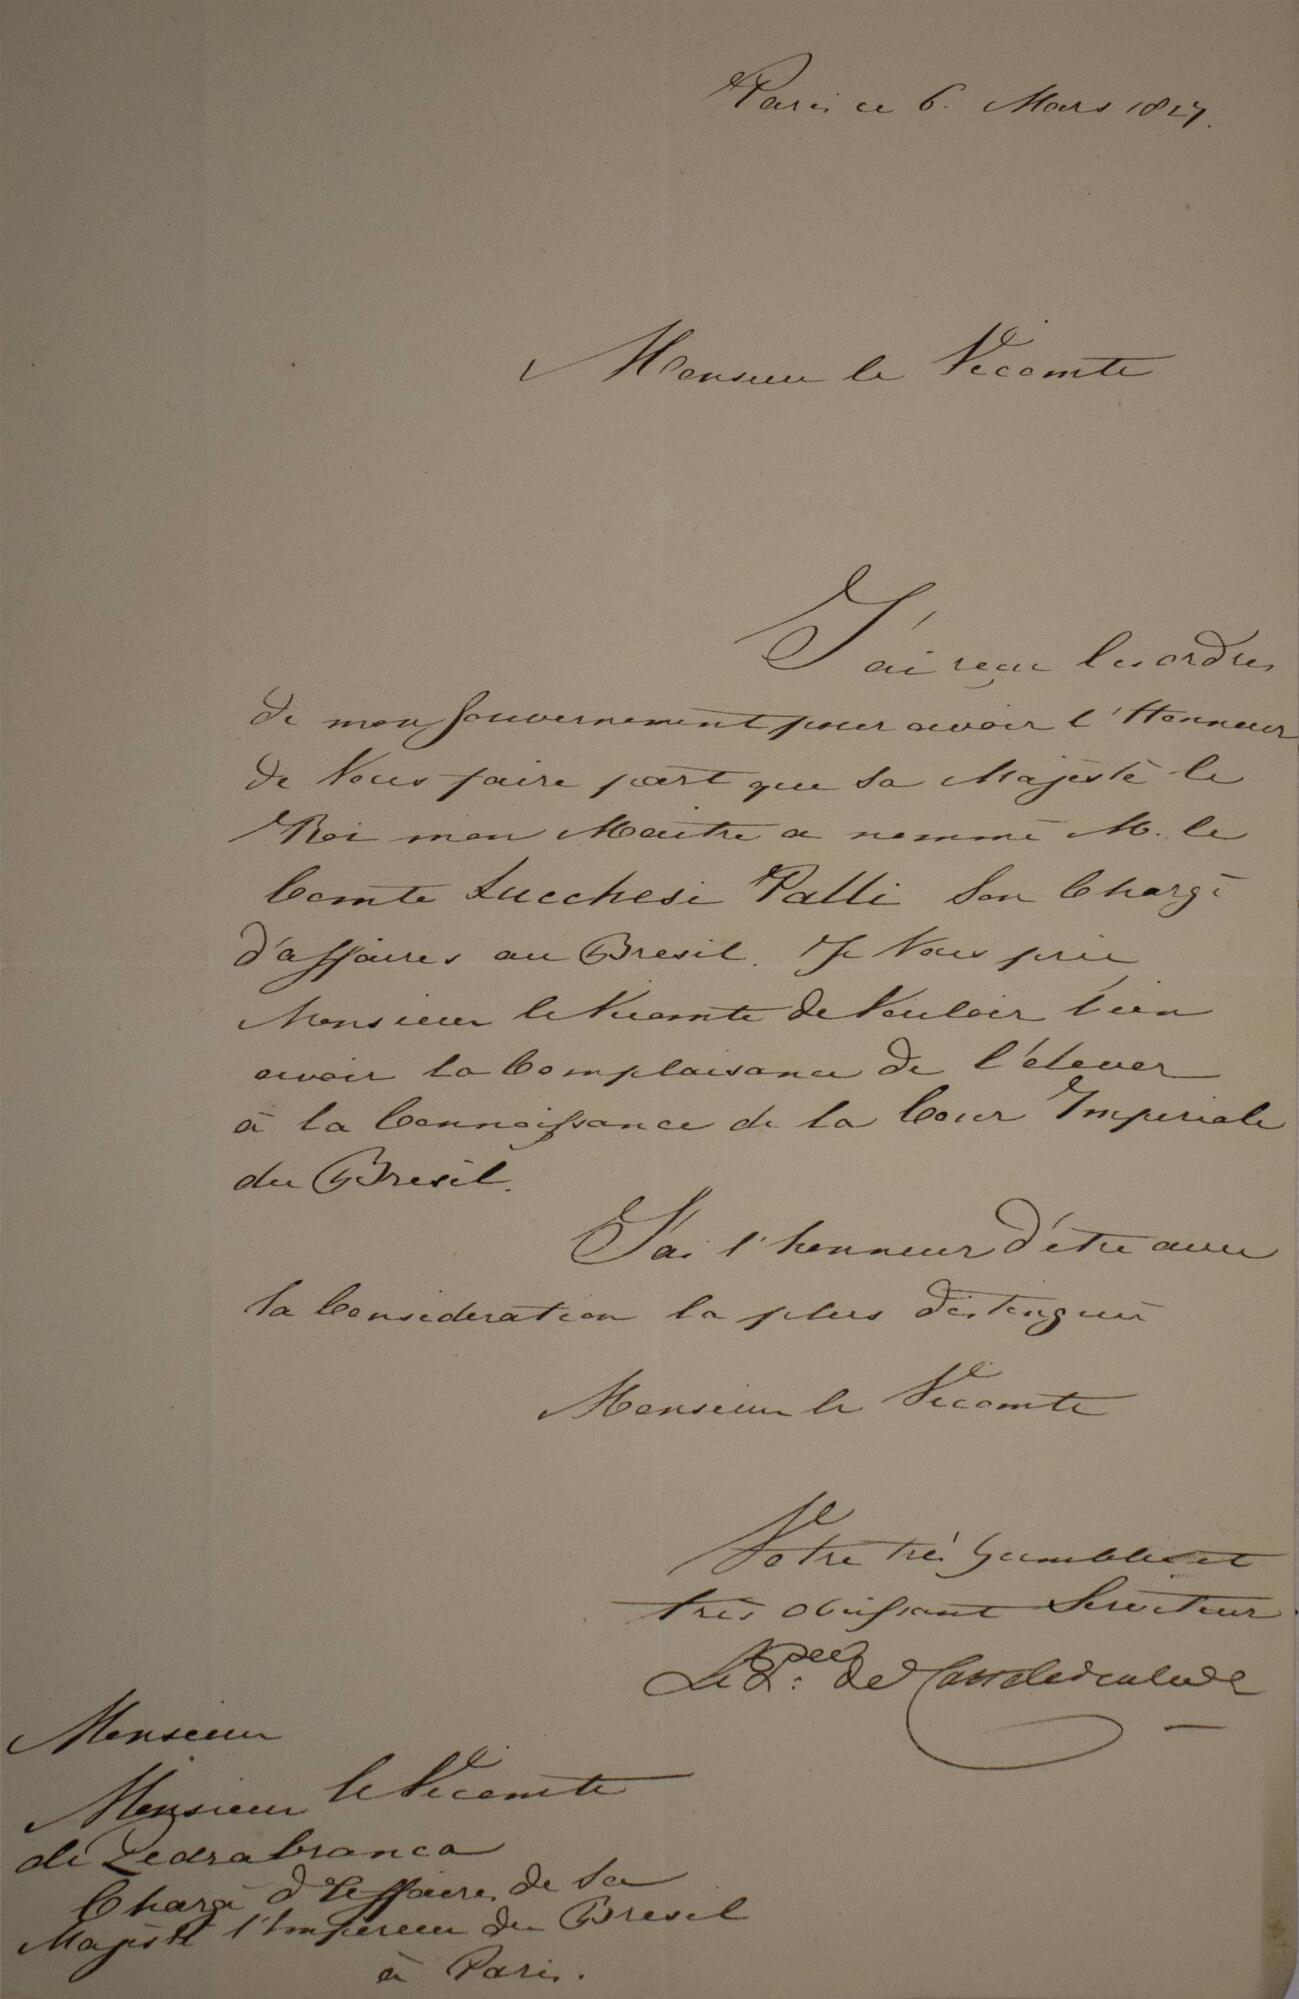 Paris ce 6. Mars 1827.
Monsieur le Vicomte
J'ai reçu les ordres
de mon Gouvernement pour avoir l'Honneur
de Vous faire part que Sa Majèstè le
Roi mon Maitre a nommè M. le
Comte Lucchesi Palli Son Chargè
d'affaires au Bresil. Je Vous prie
Monsieur le Vicomte de Vouloir bien
avoir la Complaisance de l'élever
à la Connaissance de la Cour Imperiale
du Bresil.
J'ai l'honneur d'être avec
la Consideration la plus distinguée
Monsieur le Vicomte
Votre très humble et
très obéissant Serviteur
Le P.ce de Castelcicala
Monsieur
Monsieur le Vicomte
de Pedrabranca
Chargè d'Affaires de Sa
Majèstè l'Empereur du Bresil
à Paris.